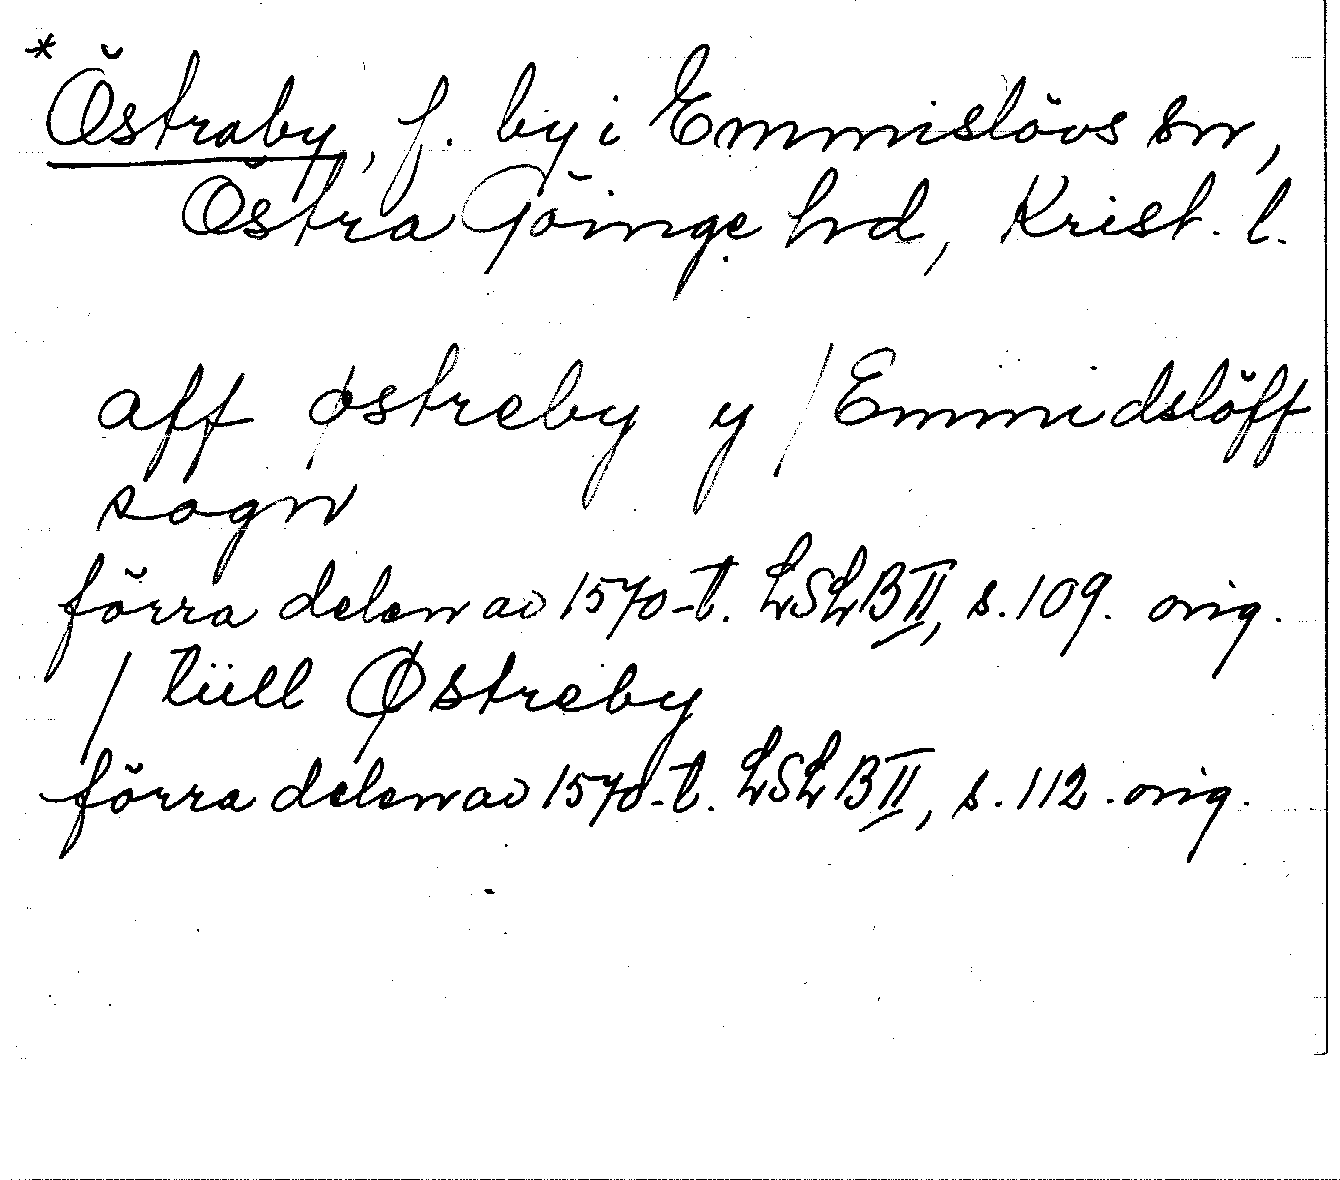 * Östraby, f. by i Emmislövs sn,
Östra Göinge hd, Krist. l.
aff østreby y / Emmidslöff
sogn
förra delen av 1570-t. LSLB II, s. 109. orig.
/ tüll Østreby
förra delen av 1570-t. LSLB II, s. 112. orig.